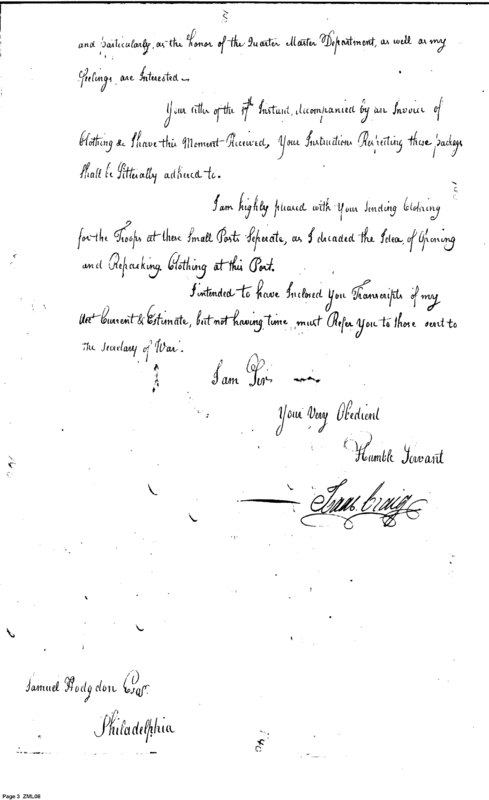 and particularly, as the honor of the Quarter Master Department, as well as my
feelings are Interested
Your letter of the 17th Instant, Accompanied by an Invoice of
Clothing &c I have this Moment Received, Your Instructions Respecting these packages
Shall be Litterally adhered to.
I am highly pleased with Your sending Clothing
for the Troops at these Small Posts Seperate, as I dreaded the Idea of Opening
and Repacking Clothing at this Post.
I intended to have Inclosed You Transcripts of my
Acct Current & Estimate, but not having time must Refer You to those sent to
the Secretary of War.
I am Sir
Your Very Obedient
Humble Servant
Isaac Craig
Samuel Hodgdon Esqr.
Philadelphia
Page 3 ZML08